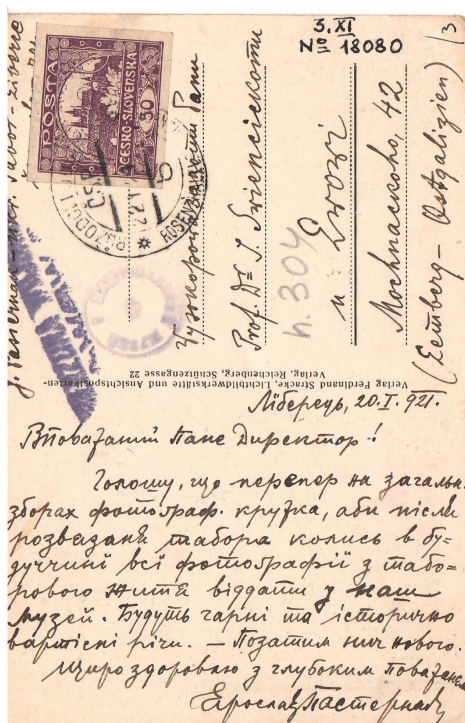 5. XI
№ 18080
13
POSTA
ČESKO-SLOVENSKA
30
Високоповажаний Пан
Prof. Dr. I. Swiencickomu
u Lwowi
Mochnackoho, 42
(Lemberg - Ostgalizien)
h. 304
J. Pasternak
Verlag Ferdinand Stracke, Lichtbildwerkstätte und Ansichtspostkarten-
Verlag, Reichenberg, Schützengasse 22
Ліберець, 20.I.921.
Вповажаний Пане Директор!
Голошу, що перепер на загальн.
зборах фотограф. кружка, аби після
розвязаня табора колись в бу-
дуччині всі фотоґрафії з табо-
рового житя віддати у наш
музей. Будуть гарні та історично
вартісні річи. – Позатим нич нового.
Щиро здоровлю з глубоким поважанєм
Ярослав Пастернак